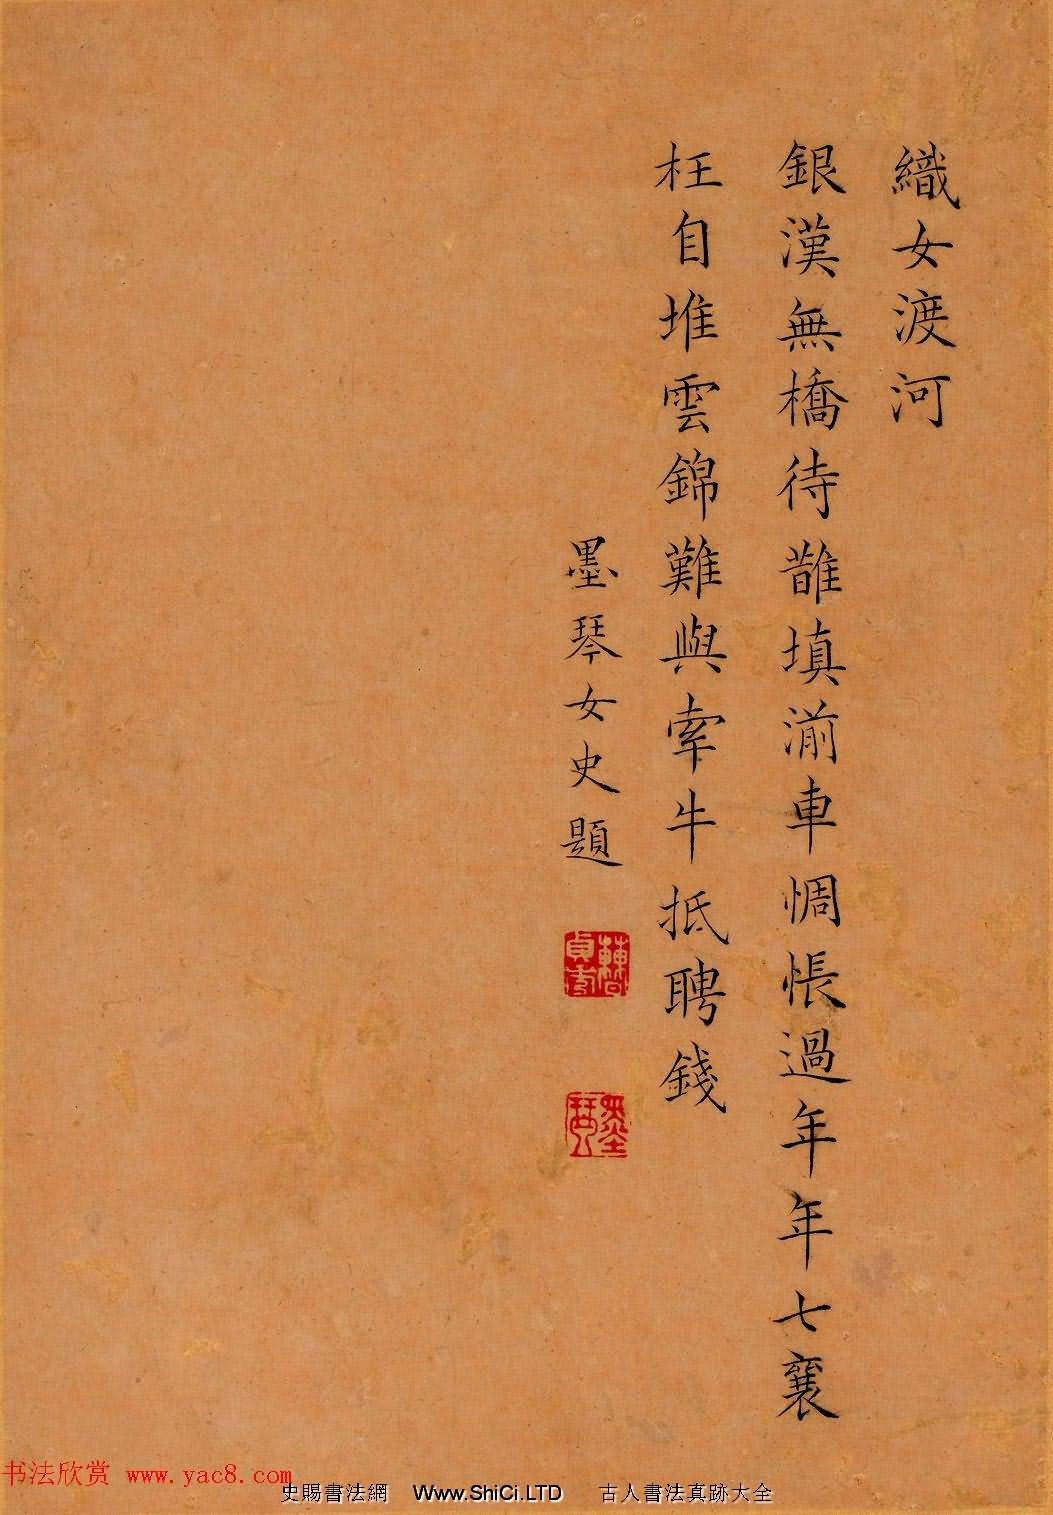 織女渡河
銀漢無橋待誰填湔車惆悵過年年七襄
枉自堆雲錦難與牽牛抵聘錢
墨琴女史題
墨琴
书法欣赏 www.yac8.com
史賜書法網 Www.ShiCi.LTD 古人書法真跡大全